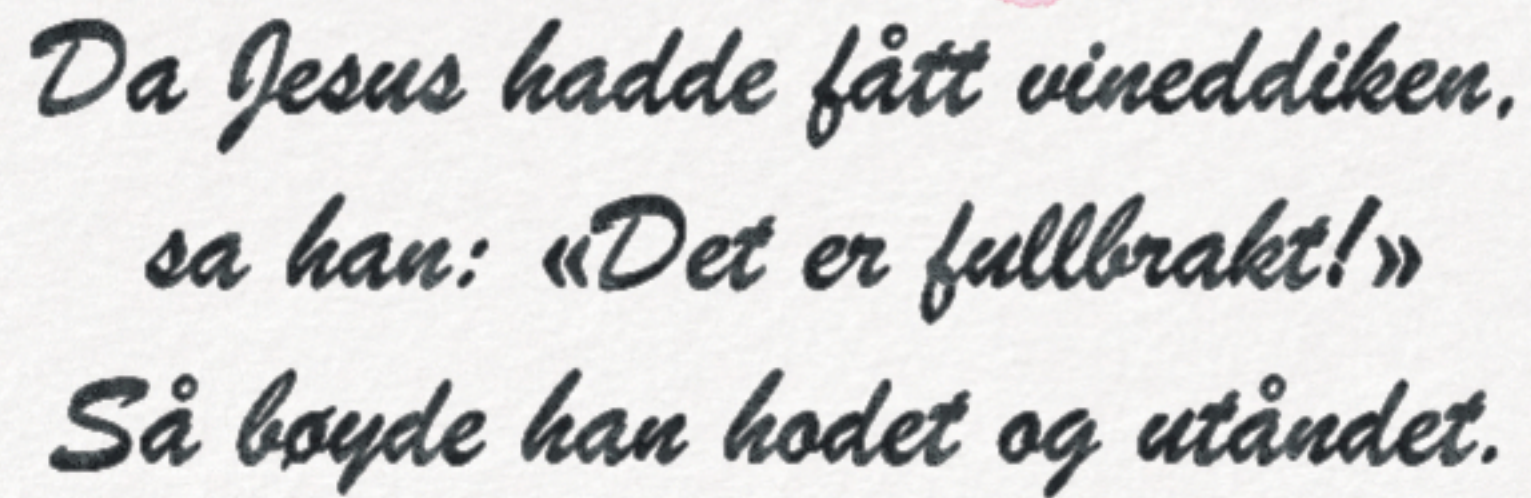 Da Jesus hadde fått vineddiken,
sa han: «Det er fullbrakt!»
Så bøyde han hodet og utåndet.